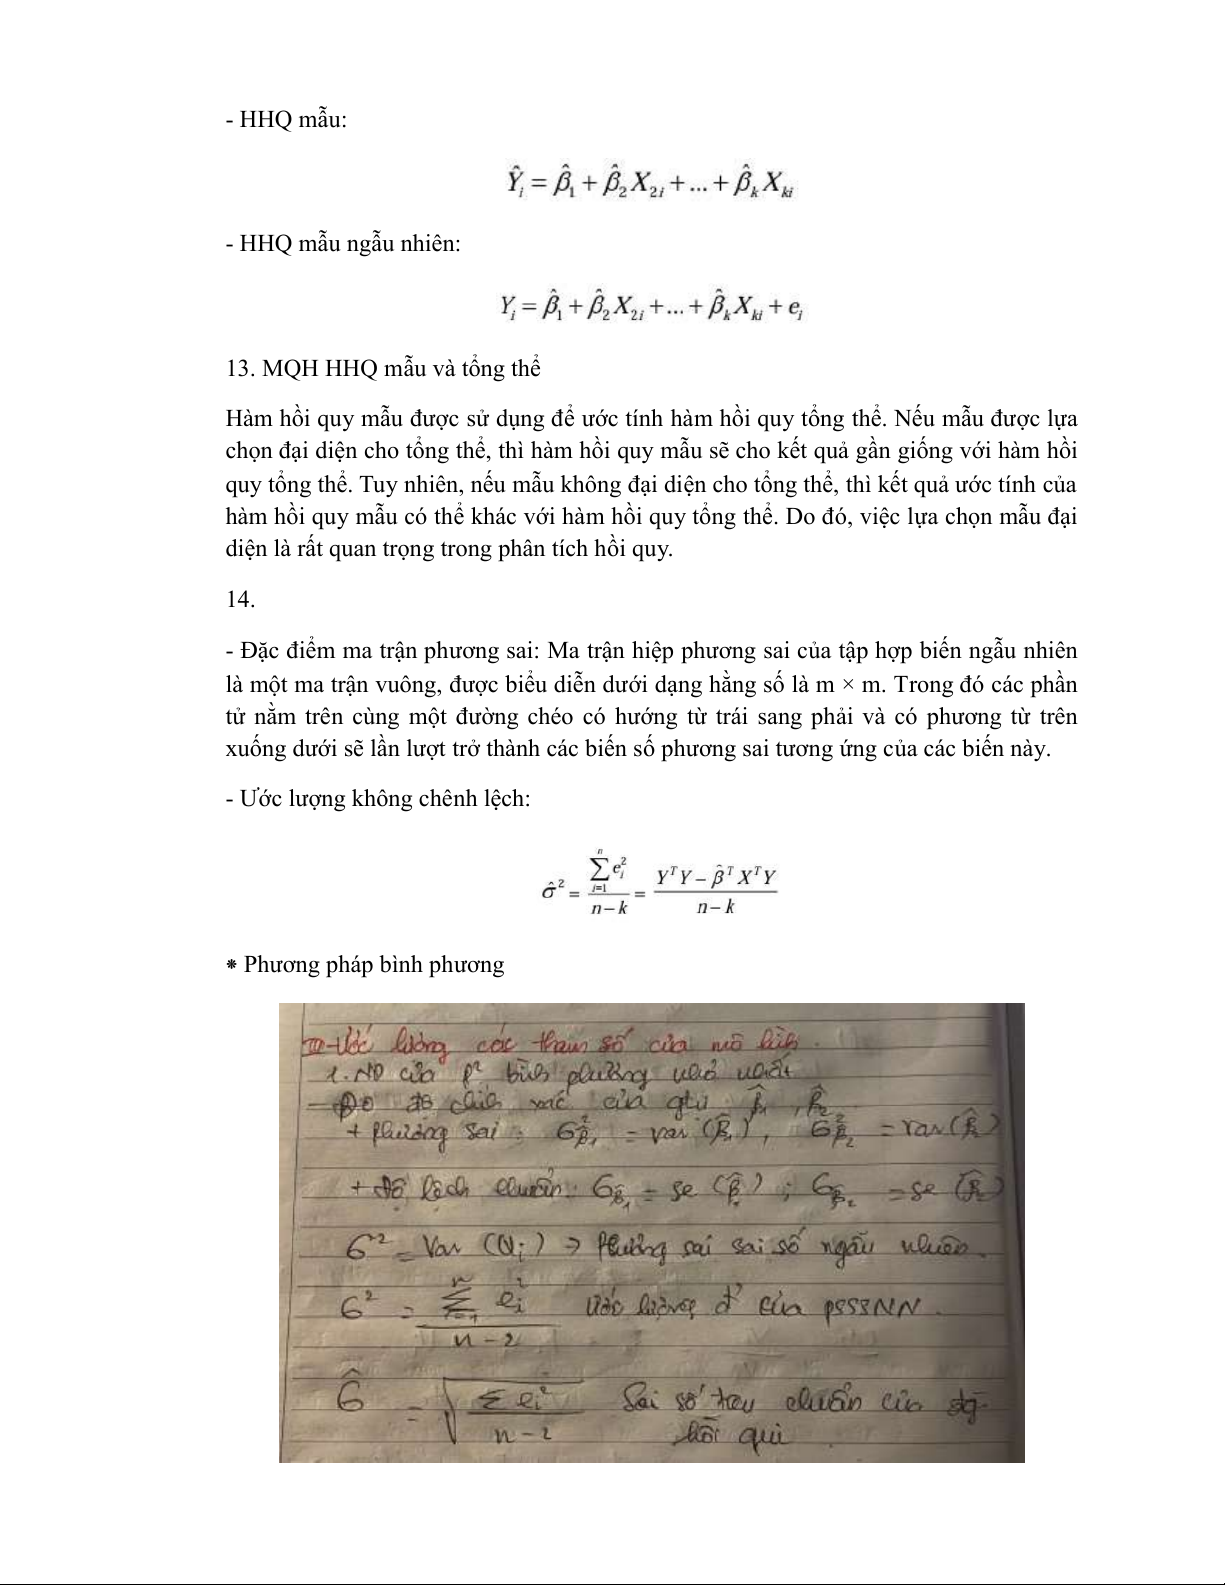 - HHQ mẫu:
Ŷᵢ = β̂₁ + β̂₂X₂ᵢ + ... + β̂ₖXₖᵢ
- HHQ mẫu ngẫu nhiên:
Yᵢ = β̂₁ + β̂₂X₂ᵢ + ... + β̂ₖXₖᵢ + eᵢ
13. MQH HHQ mẫu và tổng thể
Hàm hồi quy mẫu được sử dụng để ước tính hàm hồi quy tổng thể. Nếu mẫu được lựa
chọn đại diện cho tổng thể, thì hàm hồi quy mẫu sẽ cho kết quả gần giống với hàm hồi
quy tổng thể. Tuy nhiên, nếu mẫu không đại diện cho tổng thể, thì kết quả ước tính của
hàm hồi quy mẫu có thể khác với hàm hồi quy tổng thể. Do đó, việc lựa chọn mẫu đại
diện là rất quan trọng trong phân tích hồi quy.
14.
- Đặc điểm ma trận phương sai: Ma trận hiệp phương sai của tập hợp biến ngẫu nhiên
là một ma trận vuông, được biểu diễn dưới dạng hằng số là m × m. Trong đó các phần
tử nằm trên cùng một đường chéo có hướng từ trái sang phải và có phương từ trên
xuống dưới sẽ lần lượt trở thành các biến số phương sai tương ứng của các biến này.
- Ước lượng không chênh lệch:
σ̂² = (∑ᵢ₌₁ⁿ eᵢ²)/(n − k) = (YᵀY − β̂ᵀXᵀY)/(n − k)
⁕ Phương pháp bình phương
III - Ước lượng các tham số của mô hình.
1. ND của P² bình phương nhỏ nhất
- Đo độ chính xác của gtrị β̂₁, β̂₂
+ Phương sai: σ²β̂₁ = var(β̂₁), σ²β̂₂ = var(β̂₂)
+ Độ lệch chuẩn: σβ̂₁ = se(β̂₁); σβ̂₂ = se(β̂₂)
σ² = Var(Uᵢ) → Phương sai sai số ngẫu nhiên.
σ² = (∑ᵢ₌₁ⁿ eᵢ²)/(n − 2) ước lượng của PSSSNN.
σ̂ = √(∑eᵢ²/(n − 2)) Sai số tiêu chuẩn của
hồi qui